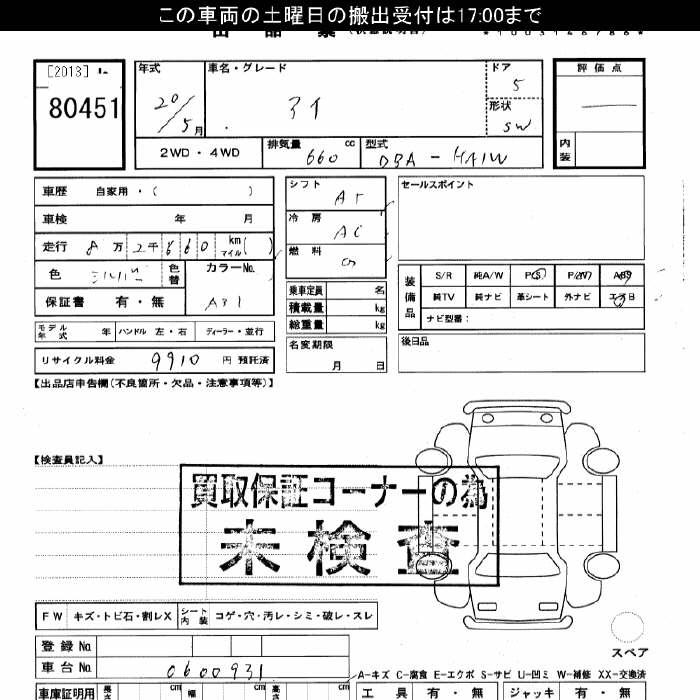 この車両の土曜日の搬出受付は17:00まで
[2013]
80451
年式
車名・グレード
ドア
評価点
20/5月
アイ
5
形状
SW
2WD・4WD
排気量
660
cc
型式
DBA-HA1W
内装
車歴 自家用・( )
シフト
AT
セールスポイント
車検 年 月
冷房
AC
走行 8万2千660
km
マイル
( )
燃料
色
シルバー
色替
カラーNo.
A31
保証書 有・無
乗車定員 名
積載量 kg
総重量 kg
装備品
S/R
純A/W
P(S)
P/W
ABS
純TV
純ナビ
革シート
外ナビ
エアB
ナビ型番:
モデル年式 年
ハンドル 左・右
ディーラー・並行
名変期限
月 日
後日品
リサイクル料金 9910 円 預託済
【出品店申告欄(不良箇所・欠品・注意事項等)】
【検査員記入】
買取保証コーナーの為
未検査
FW キズ・トビ石・割レX
シート内装
コゲ・穴・汚レ・シミ・破レ・スレ
スペア
登録No.
車台No. 0600931
A-キズ C-腐食 E-エクボ S-サビ U-凹ミ W-補修 XX-交換済
車庫証明用
長さ
cm
幅
cm
高さ
cm
工具 有・無
ジャッキ 有・無